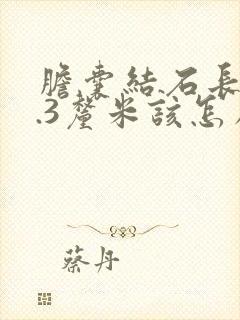 膽囊結石長
.3釐米該怎
蔡丹